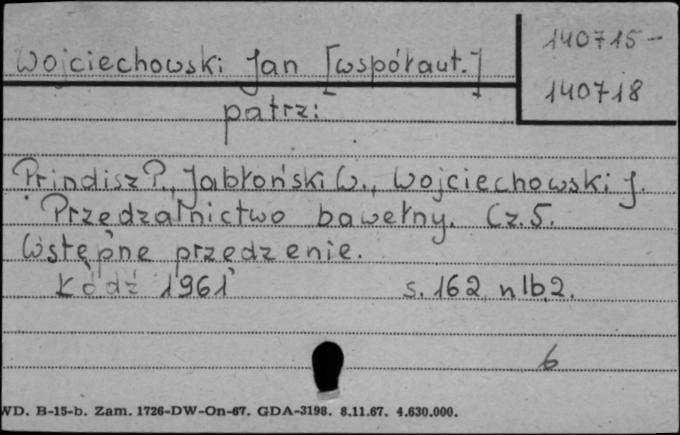 Wojciechowski Jan [współaut.]
140715-
140718
patrz:
Prindisz P., Jabłoński W., Wojciechowski J.
Przędzalnictwo bawełny. Cz. 5.
Wstępne przędzenie.
Łódź 1961 s. 162, nlb. 2.
6
WD. B-15-b. Zam. 1726-DW-On-67. GDA-3198. 8.11.67. 4.630.000.